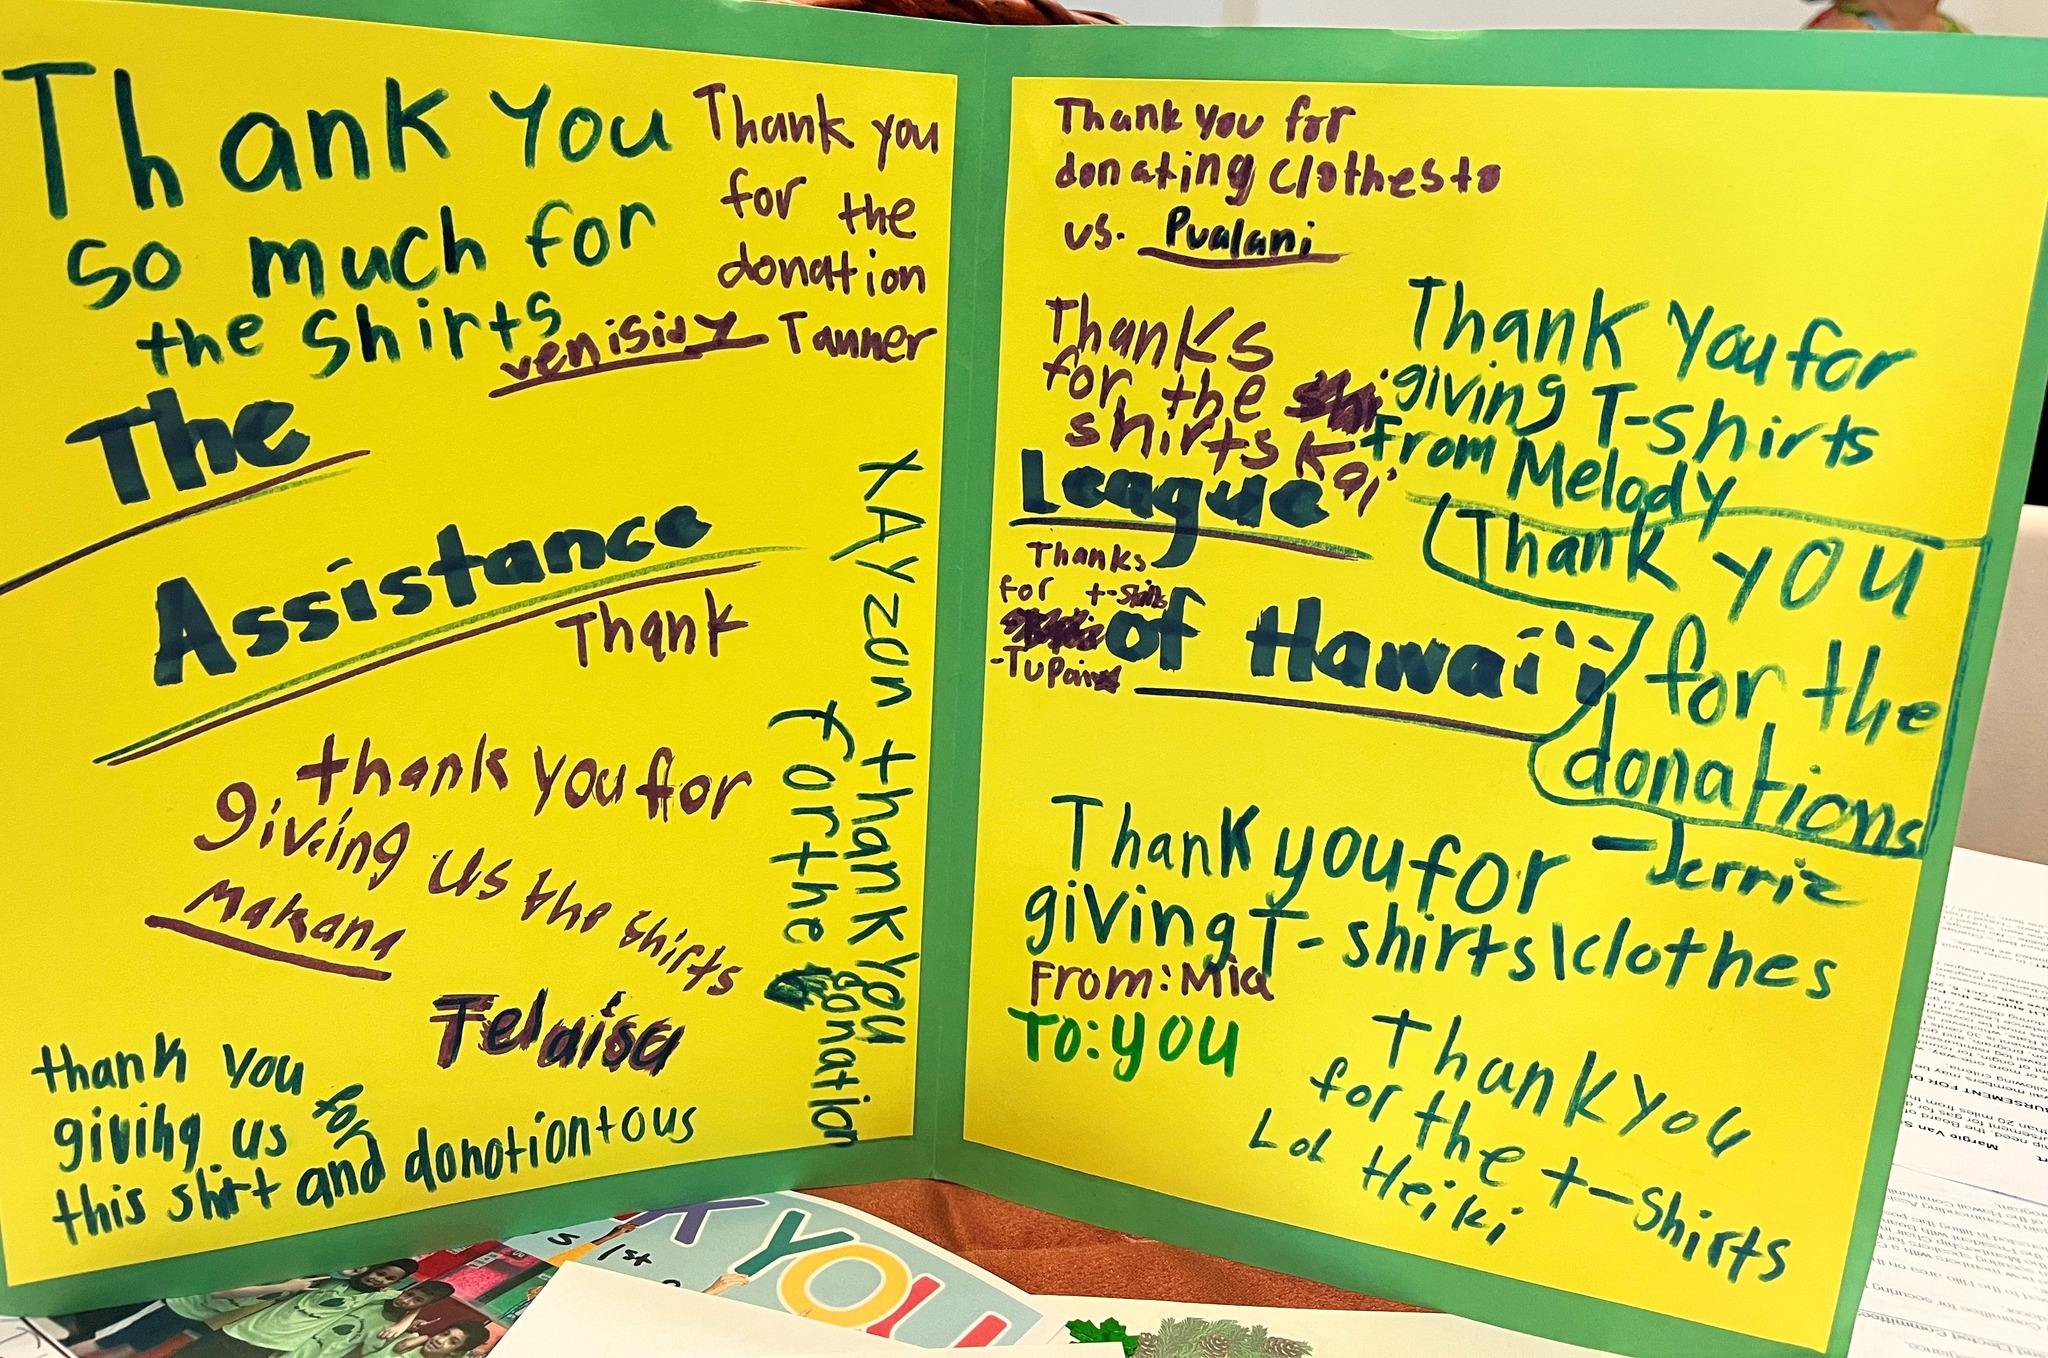 Thank you
so much for
the shirts
venisidy
Thank you
for the
donation
Tanner
The
Assistance
Thank
thank you for
giving us the shirts
Makana
Telaisa
thank you for
giving us
this shirt and donotion to us
XAyzan thank you
for the donation
Thank you for
donating clothes to
us. Pualani
Thanks
for the
shirts Kai
Thank you for
giving T-shirts
from Melody
League
of Hawai'i
Thanks
for t-shirts
Thank you
for the
donations
-Jerriz
Thank you for
giving T-shirts\clothes
From: Mia
To: you
Thank you
for the t-shirts
LoL Heiki
YOU
1st
Margie Van